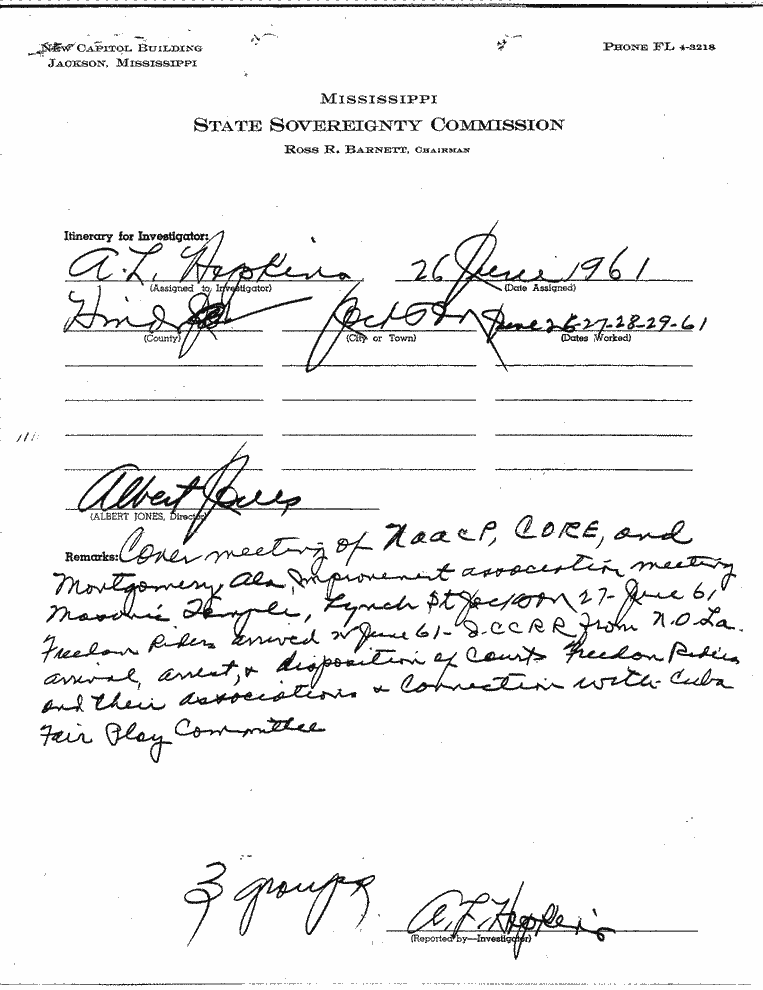 NEW CAPITOL BUILDING
JACKSON, MISSISSIPPI
PHONE FL 4-3218
MISSISSIPPI
STATE SOVEREIGNTY COMMISSION
ROSS R. BARNETT, CHAIRMAN
Itinerary for Investigator:
A. L. Hopkins 26 June 1961
(Assigned to Investigator) (Date Assigned)
Hinds Jackson June 26-27-28-29-61
(County) (City or Town) (Dates Worked)
Albert Jones
(ALBERT JONES, Director)
Remarks: Cover meeting of NAACP, CORE, and
Montgomery, Ala, Improvement association meeting
Masonic Temple, Lynch St Jackson 27-June 61
Freedom Riders arrived June 61- I.C.R.R. From N.O. La.
arrival, arrest, & disposition of Courts Freedom Riders
and their associations & Connection with Cuba
Fair Play Committee
3 groups
A. L. Hopkins
(Reported by—Investigator)